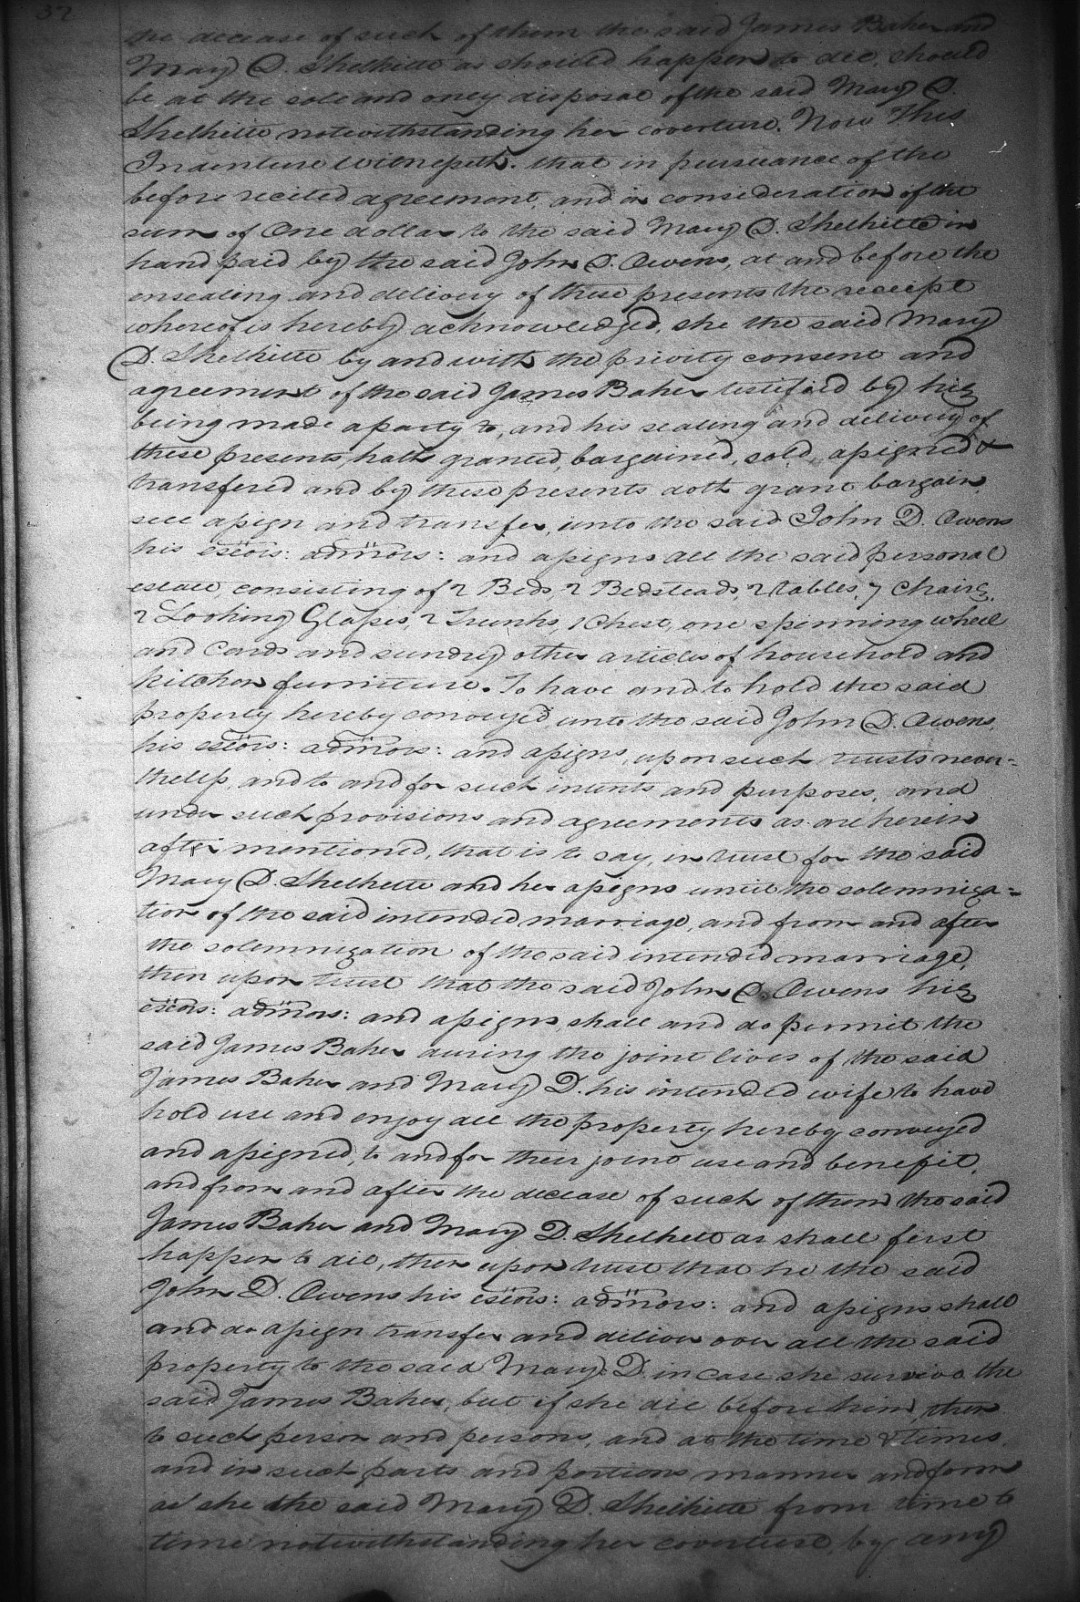 32
the decease of such of them the said James Baker and
Mary D. Shelhitte as should happen to die, should
be at the sole and only disposal of the said Mary D.
Shelhitte notwithstanding her coverture. Now This
Indenture witnesseth. that in pursuance of the
before recited agreement, and in consideration of the
sum of One dollar to the said Mary D. Shelhitte in
hand paid by the said John D. Owens, at and before the
ensealing and delivery of these presents the receipt
whereof is hereby acknowledged, she the said Mary
D. Shelhitte by and with the privity consent and
agreement of the said James Baker testified by his
being made a party to, and his sealing and delivery of
these presents, hath granted, bargained, sold, assigned &
transfered and by these presents doth grant bargain,
sell assign and transfer, unto the said John D. Owens
his exõrs: admõrs: and assigns all the said personal
estate, consisting of 2 Beds, 2 Bedsteads, 2 tables, 7 Chairs,
2 Looking Glasses, 2 Trunks, 1 Chest, one spinning wheel
and Cards and sundry other articles of household and
kitchen furniture. To have and to hold the said
property hereby conveyed unto the said John D. Owens,
his exõrs: admõrs: and assigns, upon such trusts never=
theless, and to and for such intents and purposes, and
under such provisions and agreements as are herein
after mentioned, that is to say, in trust for the said
Mary D. Shelhitte and her assigns until the solemniza=
tion of the said intended marriage, and from and after
the solemnization of the said intended marriage,
then upon trust that the said John D. Owens his
exõrs: admõrs: and assigns shall and do permit the
said James Baker during the joint lives of the said
James Baker and Mary D. his intended wife to have
hold use and enjoy all the property hereby conveyed
and assigned, to and for their joint use and benefit,
and from and after the decease of such of them the said
James Baker and Mary D. Shelhitt as shall first
happen to die, then upon trust that he the said
John D. Owens his exõrs: admõrs: and assigns shall
and do assign transfer and deliver over all the said
property to the said Mary D. in case she survive the
said James Baker, but if she die before him, then
to such person and persons, and at the time & times,
and in such parts and portions manner and form
as she the said Mary D. Shelhitte from time to
time notwithstanding her coverture, by any